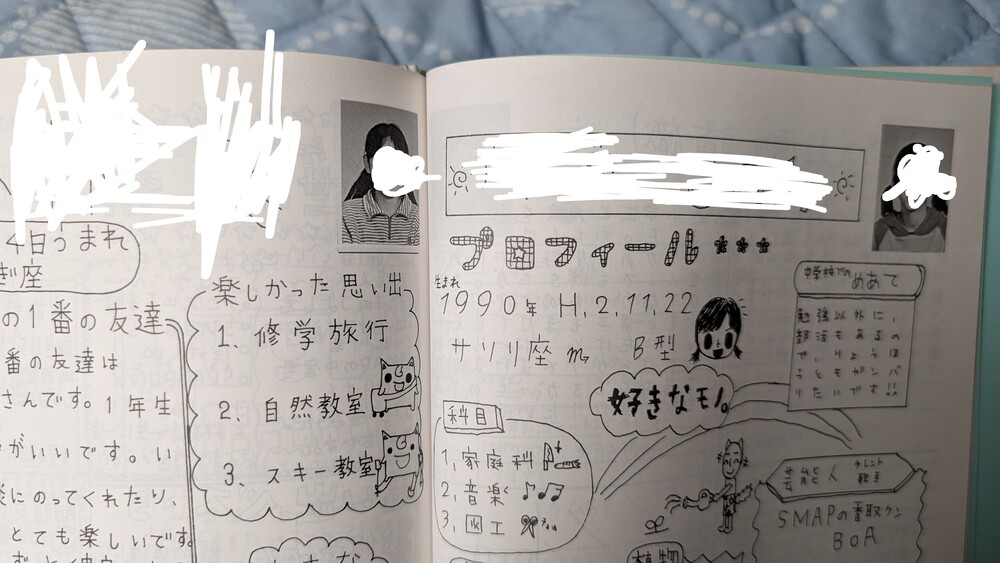 4日うまれ
ぎ座
の1番の友達
番の友達は
さんです。1年生
がいいです。い
にのってくれたり、
とても楽しいです。
楽しかった思い出
1. 修学旅行
2. 自然教室
3. スキー教室
プロフィール
生まれ
1990年 H.2.11.22
サソリ座 ♏ B型
中学校での
めあて
勉強以外に、
部活もあるの
で、りょうほ
うともガンバ
りたいです!!
好きなモノ。
科目
1, 家庭科
2, 音楽
3, 図工
芸能人
タレント
歌手
SMAPの香取クン
BoA
植物